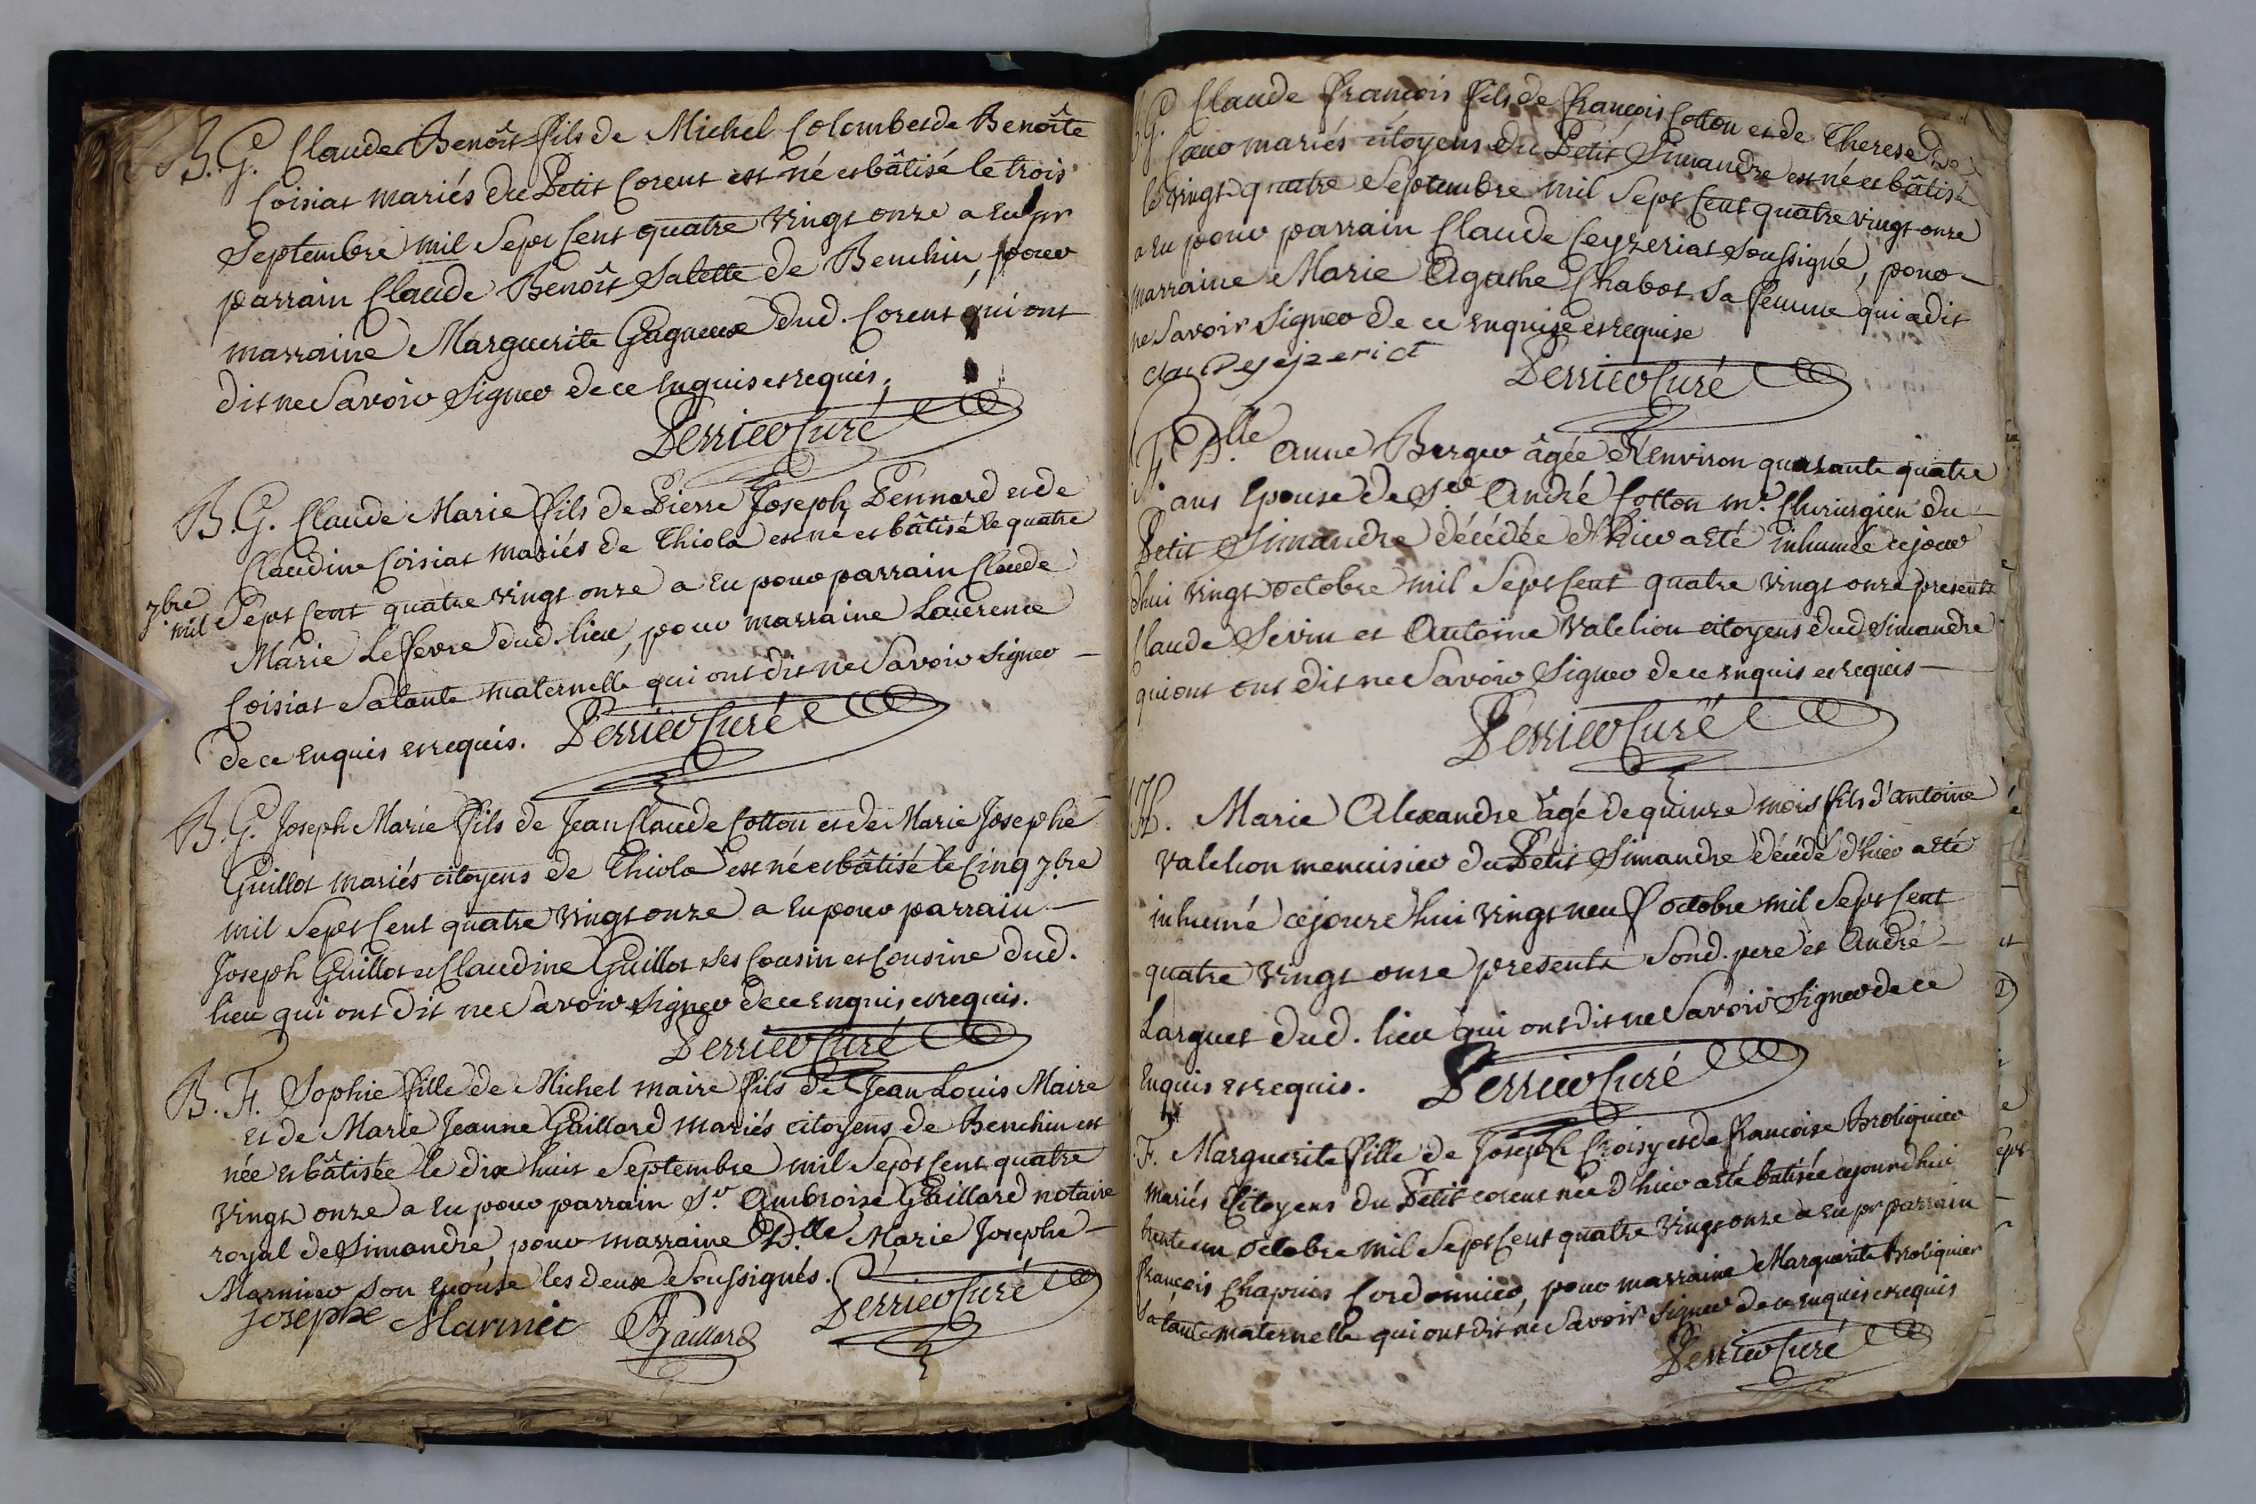 B. G. Claude Benoît fils de Michel Colomb et de Benoîte
Coisiat mariés du Petit Corent est né et bâtisé le trois
Septembre mil Sept Cent quatre vingt onze a Eu pr
parrain Claude Benoît Salette de Benchin, pour
marraine Marguerite Gagneux dud. Corent qui ont
dit ne Savoir Signer de ce Enquis et requis.
Perrier Curé
B. G. Claude Marie fils de Pierre Joseph Pennard et de
Claudine Coisiat mariés de Thiola est né et bâtisé le quatre
7bre mil Sept Cent quatre vingt onze a Eu pour parrain Claude
Marie Lefevre dud. lieu, pour marraine Laurence
Coisiat Sa tante maternelle qui ont dit ne Savoir Signer
de ce Enquis et requis. Perrier Curé
B. G. Joseph Marie fils de Jean Claude Cotton et de Marie Josephe
Guillot mariés citoyens de Thiola est né et bâtisé le Cinq 7bre
mil Sept Cent quatre vingt onze a Eu pour parrain
Joseph Guillot et Claudine Guillot Ses Cousin et Cousine dud.
lieu qui ont dit ne Savoir Signer de ce Enquis et requis.
Perrier Curé
B. F. Sophie fille de Michel Maire fils de Jean Louis Maire
et de Marie Jeanne Gaillard mariés citoyens de Benchin est
née et bâtisée le dix huit Septembre mil Sept Cent quatre
vingt onze a Eu pour parrain Sr. Ambroise Gaillard notaire
royal de Simandre, pour marraine Dlle Marie Josephe
Marmier Son Epouse les deux Soussignés.
Josephe Marmier Gaillard Perrier Curé
G. Claude François fils de François Cotton et de Therese
mariés citoyens du Petit Simandre est né et bâtisé
le vingt quatre Septembre mil Sept Cent quatre vingt onze
a Eu pour parrain Claude Ceyzeriat Soussigné, pour
marraine Marie Agathe Chabot Sa femme qui a dit
ne Savoir Signer de ce Enquise et requise
Perrier Curé
F. Dlle Anne Burger âgée d'Environ quarante quatre
ans Epouse de Sr André Cotton me. Chirurgien du
Petit Simandre décédée d'hier a Eté inhumée ce jour
dhui vingt octobre mil Sept Cent quatre vingt onze presents
Claude Sevin et Antoine Valchon citoyens dud Simandre
qui ont ont dit ne Savoir Signer de ce Enquis et requis
Perrier Curé
H. Marie Alexandre âgé de quinze mois fils d'antoine
Valchon menuisier du Petit Simandre décédé d'hier a Eté
inhumé ce jourdhui vingt neuf octobre mil Sept Cent
quatre vingt onze presents Sond. pere et André
Larguet dud. lieu qui ont dit ne Savoir Signer de ce
Enquis et requis. Perrier Curé
F. Marguerite fille de Joseph Croisy et de françoise Broliquier
mariés Citoyens du Petit corent née d'hier a Eté batisée ce jourdhui
trente un octobre mil Sept Cent quatre vingt onze a Eu pr parrain
françois Chapuis Cordonnier, pour marraine Marguerite Broliquier
Sa tante maternelle qui ont dit ne Savoir Signer de ce Enquis et requis
Perrier Curé